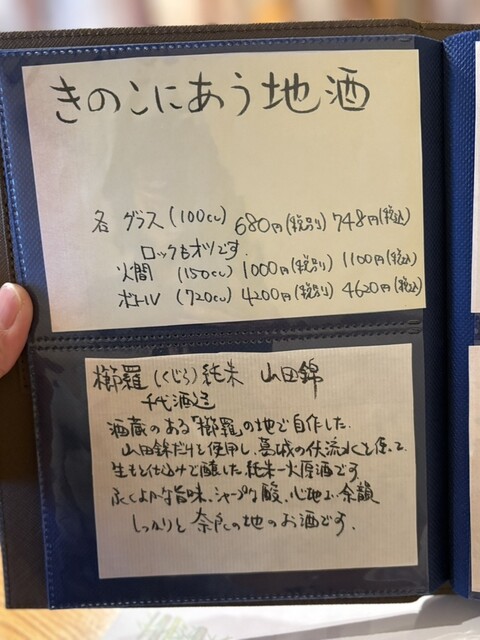 きのこにあう地酒
各 グラス(100cc) 680円(税別) 748円(税込)
ロックもオツです。
火間 (150cc) 1000円(税別) 1100円(税込)
ボトル (720cc) 4200円(税別) 4620円(税込)
櫛羅(くじら)純米 山田錦
千代酒造
酒蔵のある「櫛羅」の地で自作した
山田錦だけを使用し、葛城の伏流水を使って
生もと仕込みで醸した純米一火原酒です
ふくよかな旨味、シャープな酸、心地よい余韻
しっかりと奈良の地のお酒です。